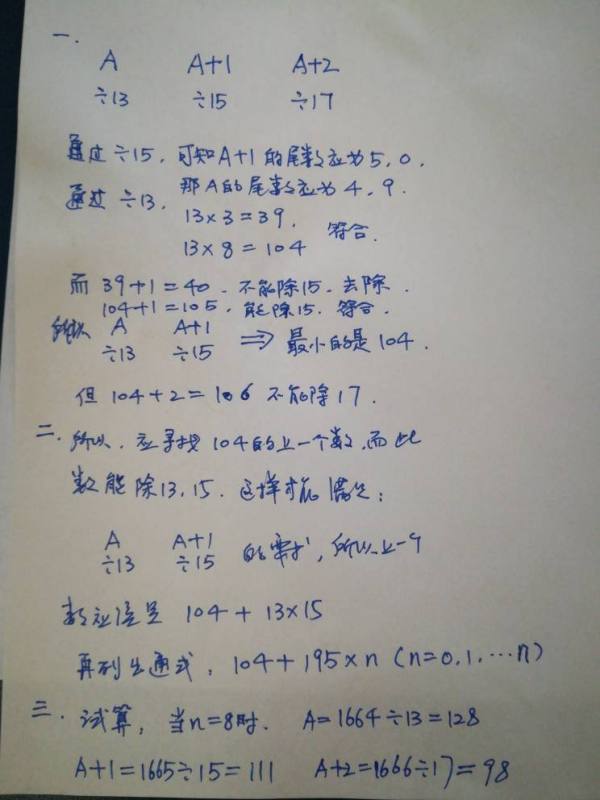 一.
A A+1 A+2
÷13 ÷15 ÷17
通过÷15, 可知A+1的尾数应为5,0.
那A的尾数应为4,9.
通过÷13,
13×3=39.
13×8=104 符合.
而 39+1=40. 不能除15. 去除.
104+1=105, 能除15. 符合.
所以 A A+1
÷13 ÷15 ⇒ 最小的是104.
但 104+2=106 不能除17.
二. 所以, 应寻找104的上一个数,而此
数能除13,15. 这样才能满足:
A A+1
÷13 ÷15 的要求, 所以上一个
数应该是 104+13×15
再列出通式, 104+195×n (n=0,1,…n)
三. 试算, 当n=8时. A=1664÷13=128
A+1=1665÷15=111 A+2=1666÷17=98